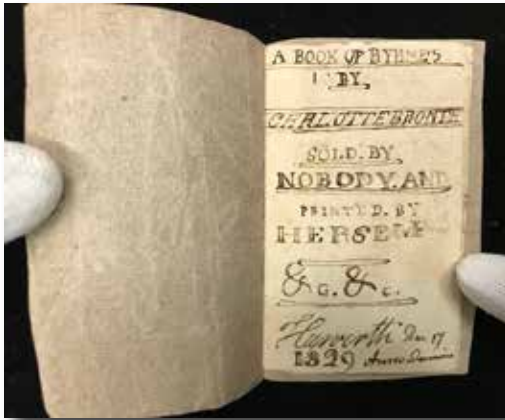 A BOOK OF RYHMES
BY,
CHARLOTTE BRONTE
SOLD. BY,
NOBODY. AND
PRINTED. BY
HERSELF
&. G. &. C.
Haworth Dec 17
1829 Anno Domini